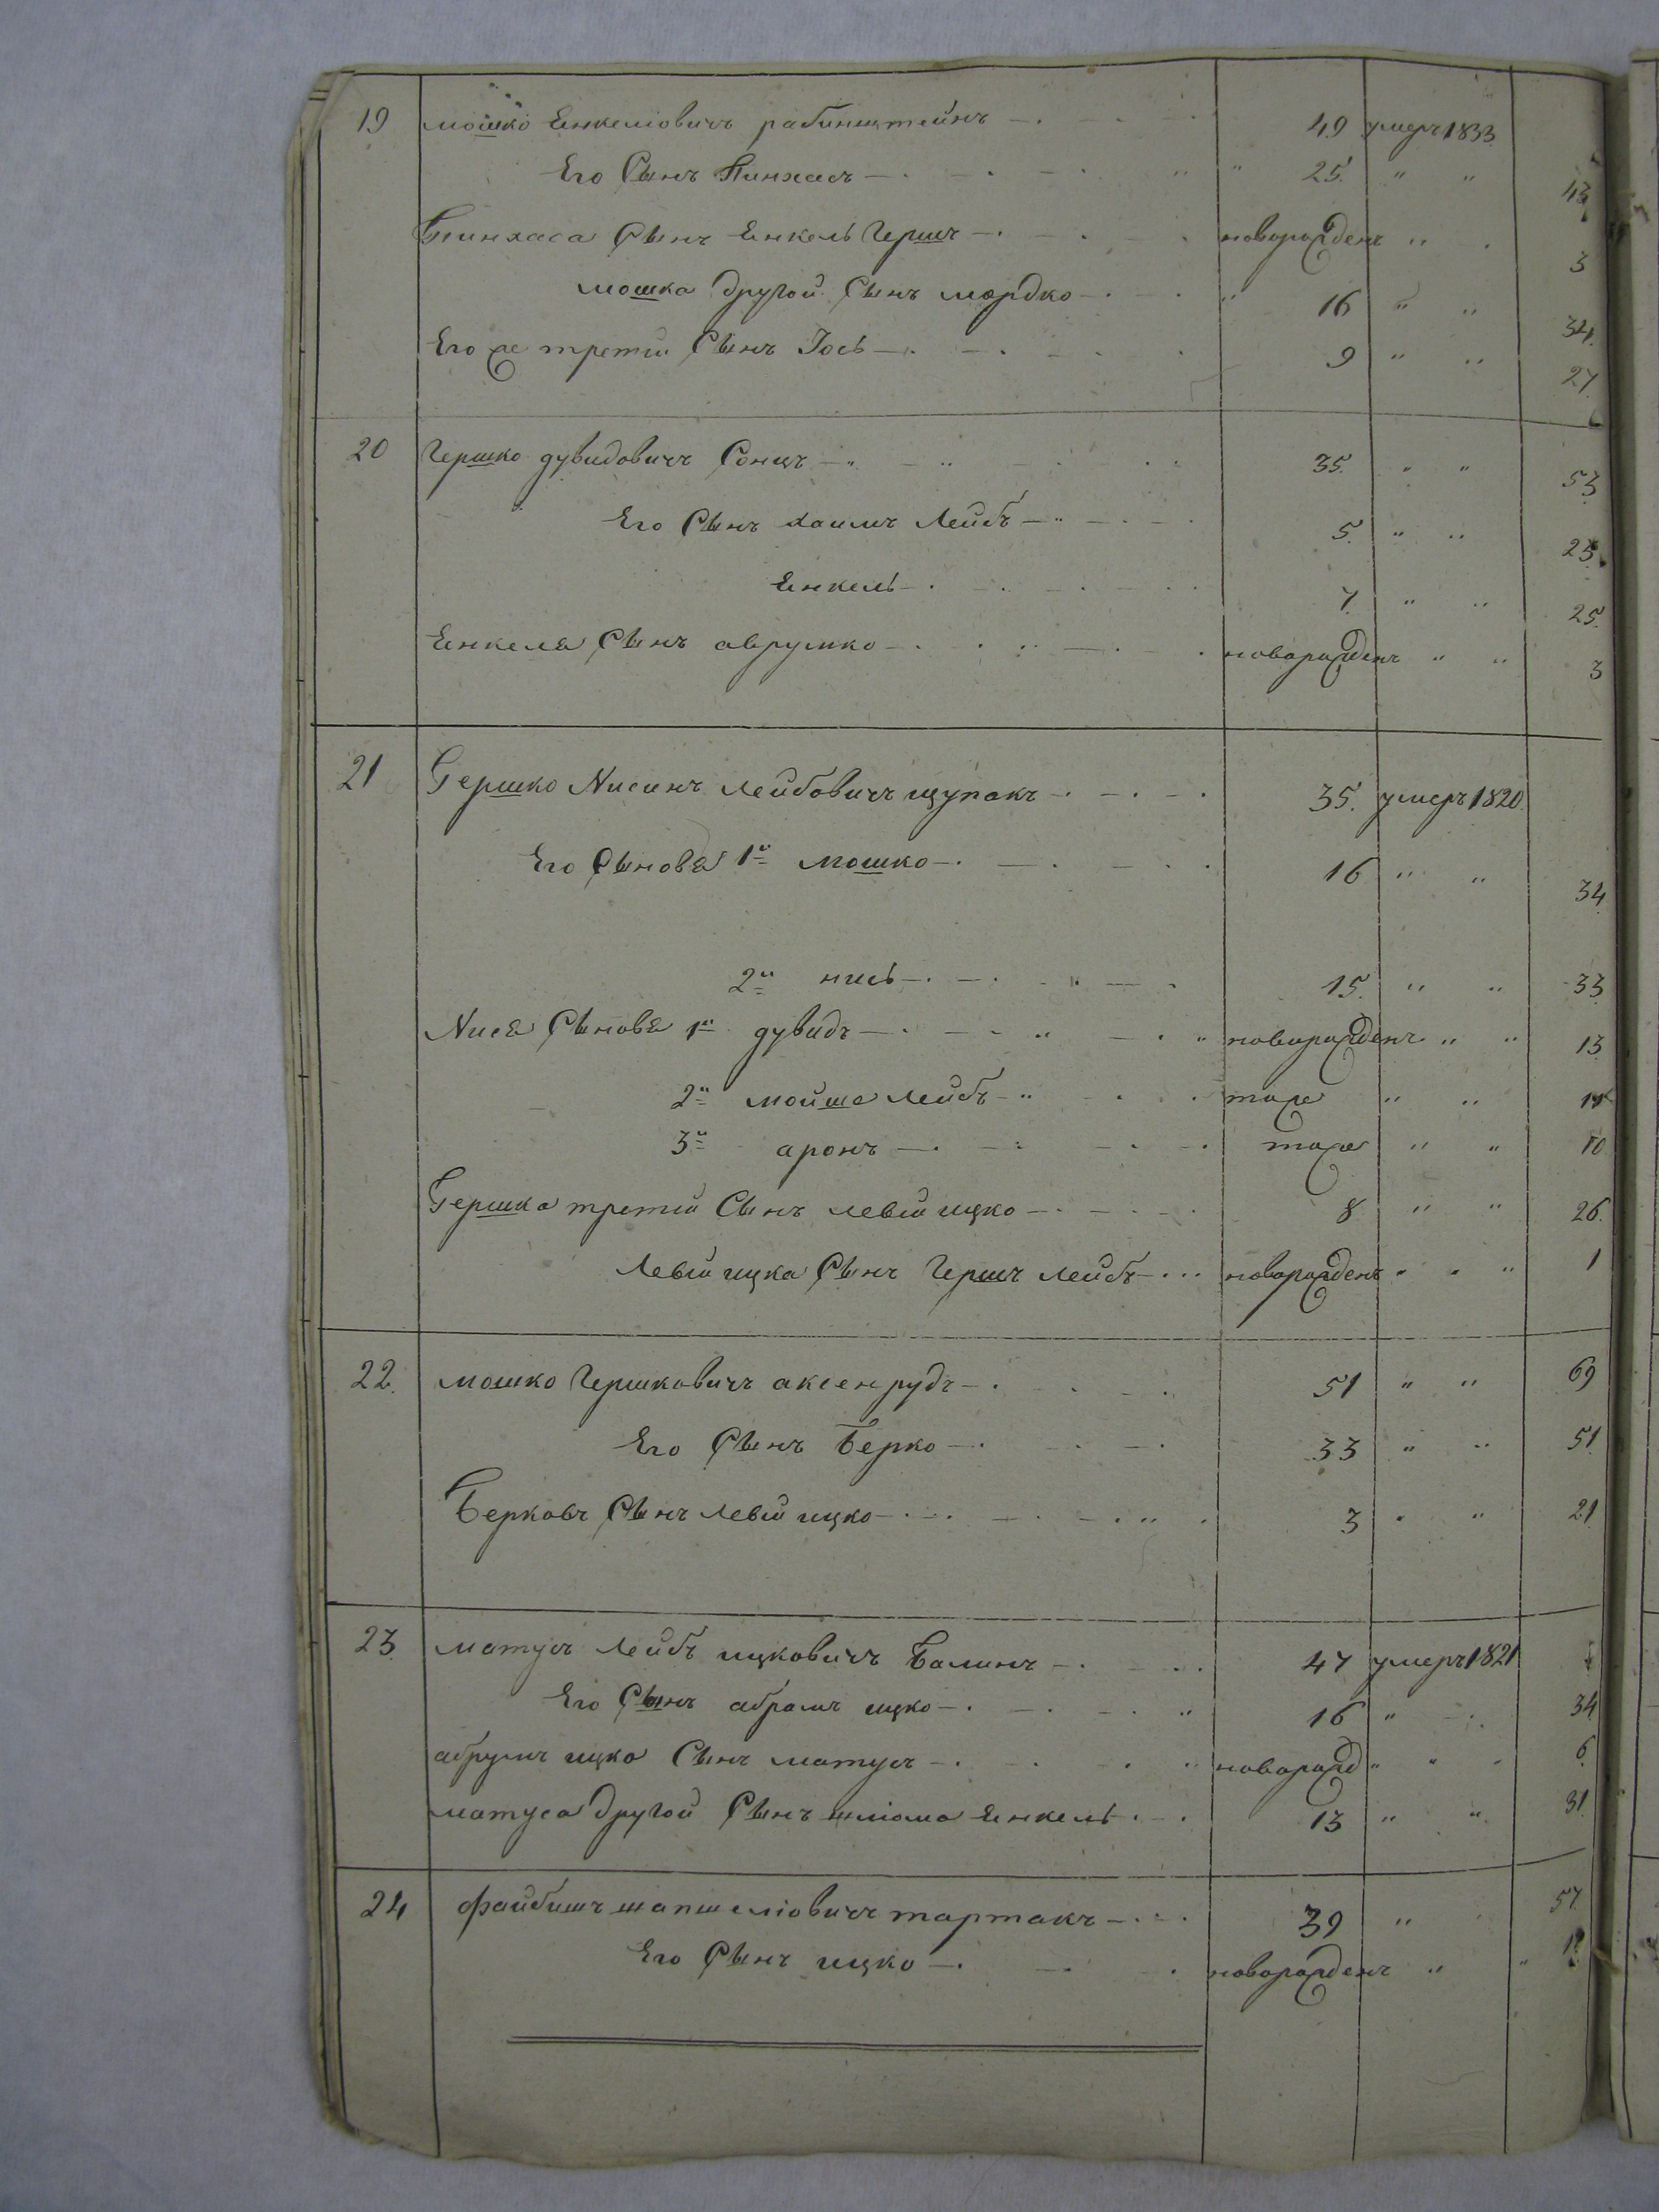 19 мошко Енкеліовичъ рабинштейнъ 49 умеръ 1833
Его Сынъ Пинхасъ 25. 43
Пинхаса Сынъ Енкель Гершъ новорожденъ 3
мошка другой Сынъ мордко 16 34
Его же третій Сынъ Іось 9 27
20 Гершко дувидовичъ 35. 53
Его Сынъ хаимъ Лейбъ 5. 23
Енкель 7. 25.
Енкеля Сынъ аврумко новорожденъ 3
21 Гершко Нисинъ лейбовичъ щупакъ 35. умеръ 1820.
Его Сыновя 1й мошко 16 34
2й нись 15. 33
Нися Сыновя 1й дувидъ новорожденъ 13
2й мойше лейбъ тоже
3й аронъ тоже 10
Гершка третій Сынъ левій ицко 8 26.
Левій ицка Сынъ Гершъ лейбъ новорожденъ 1
22. мошко Гершковичъ аксенрудъ 51 69
Его Сынъ Берко 33 51
Берковъ Сынъ левій ицко 3 21
23. матусъ лейбъ ицковичъ Балинъ 47 умеръ 1821
Его Сынъ абрамъ ицко 16 34
абрумъ ицко Сынъ матусъ новорожд 6
матуса другой Сынъ шліома Енкель 13 31.
24 файбишъ шапшеліовичъ тартакъ 39 57
Его Сынъ ицко новорожденъ